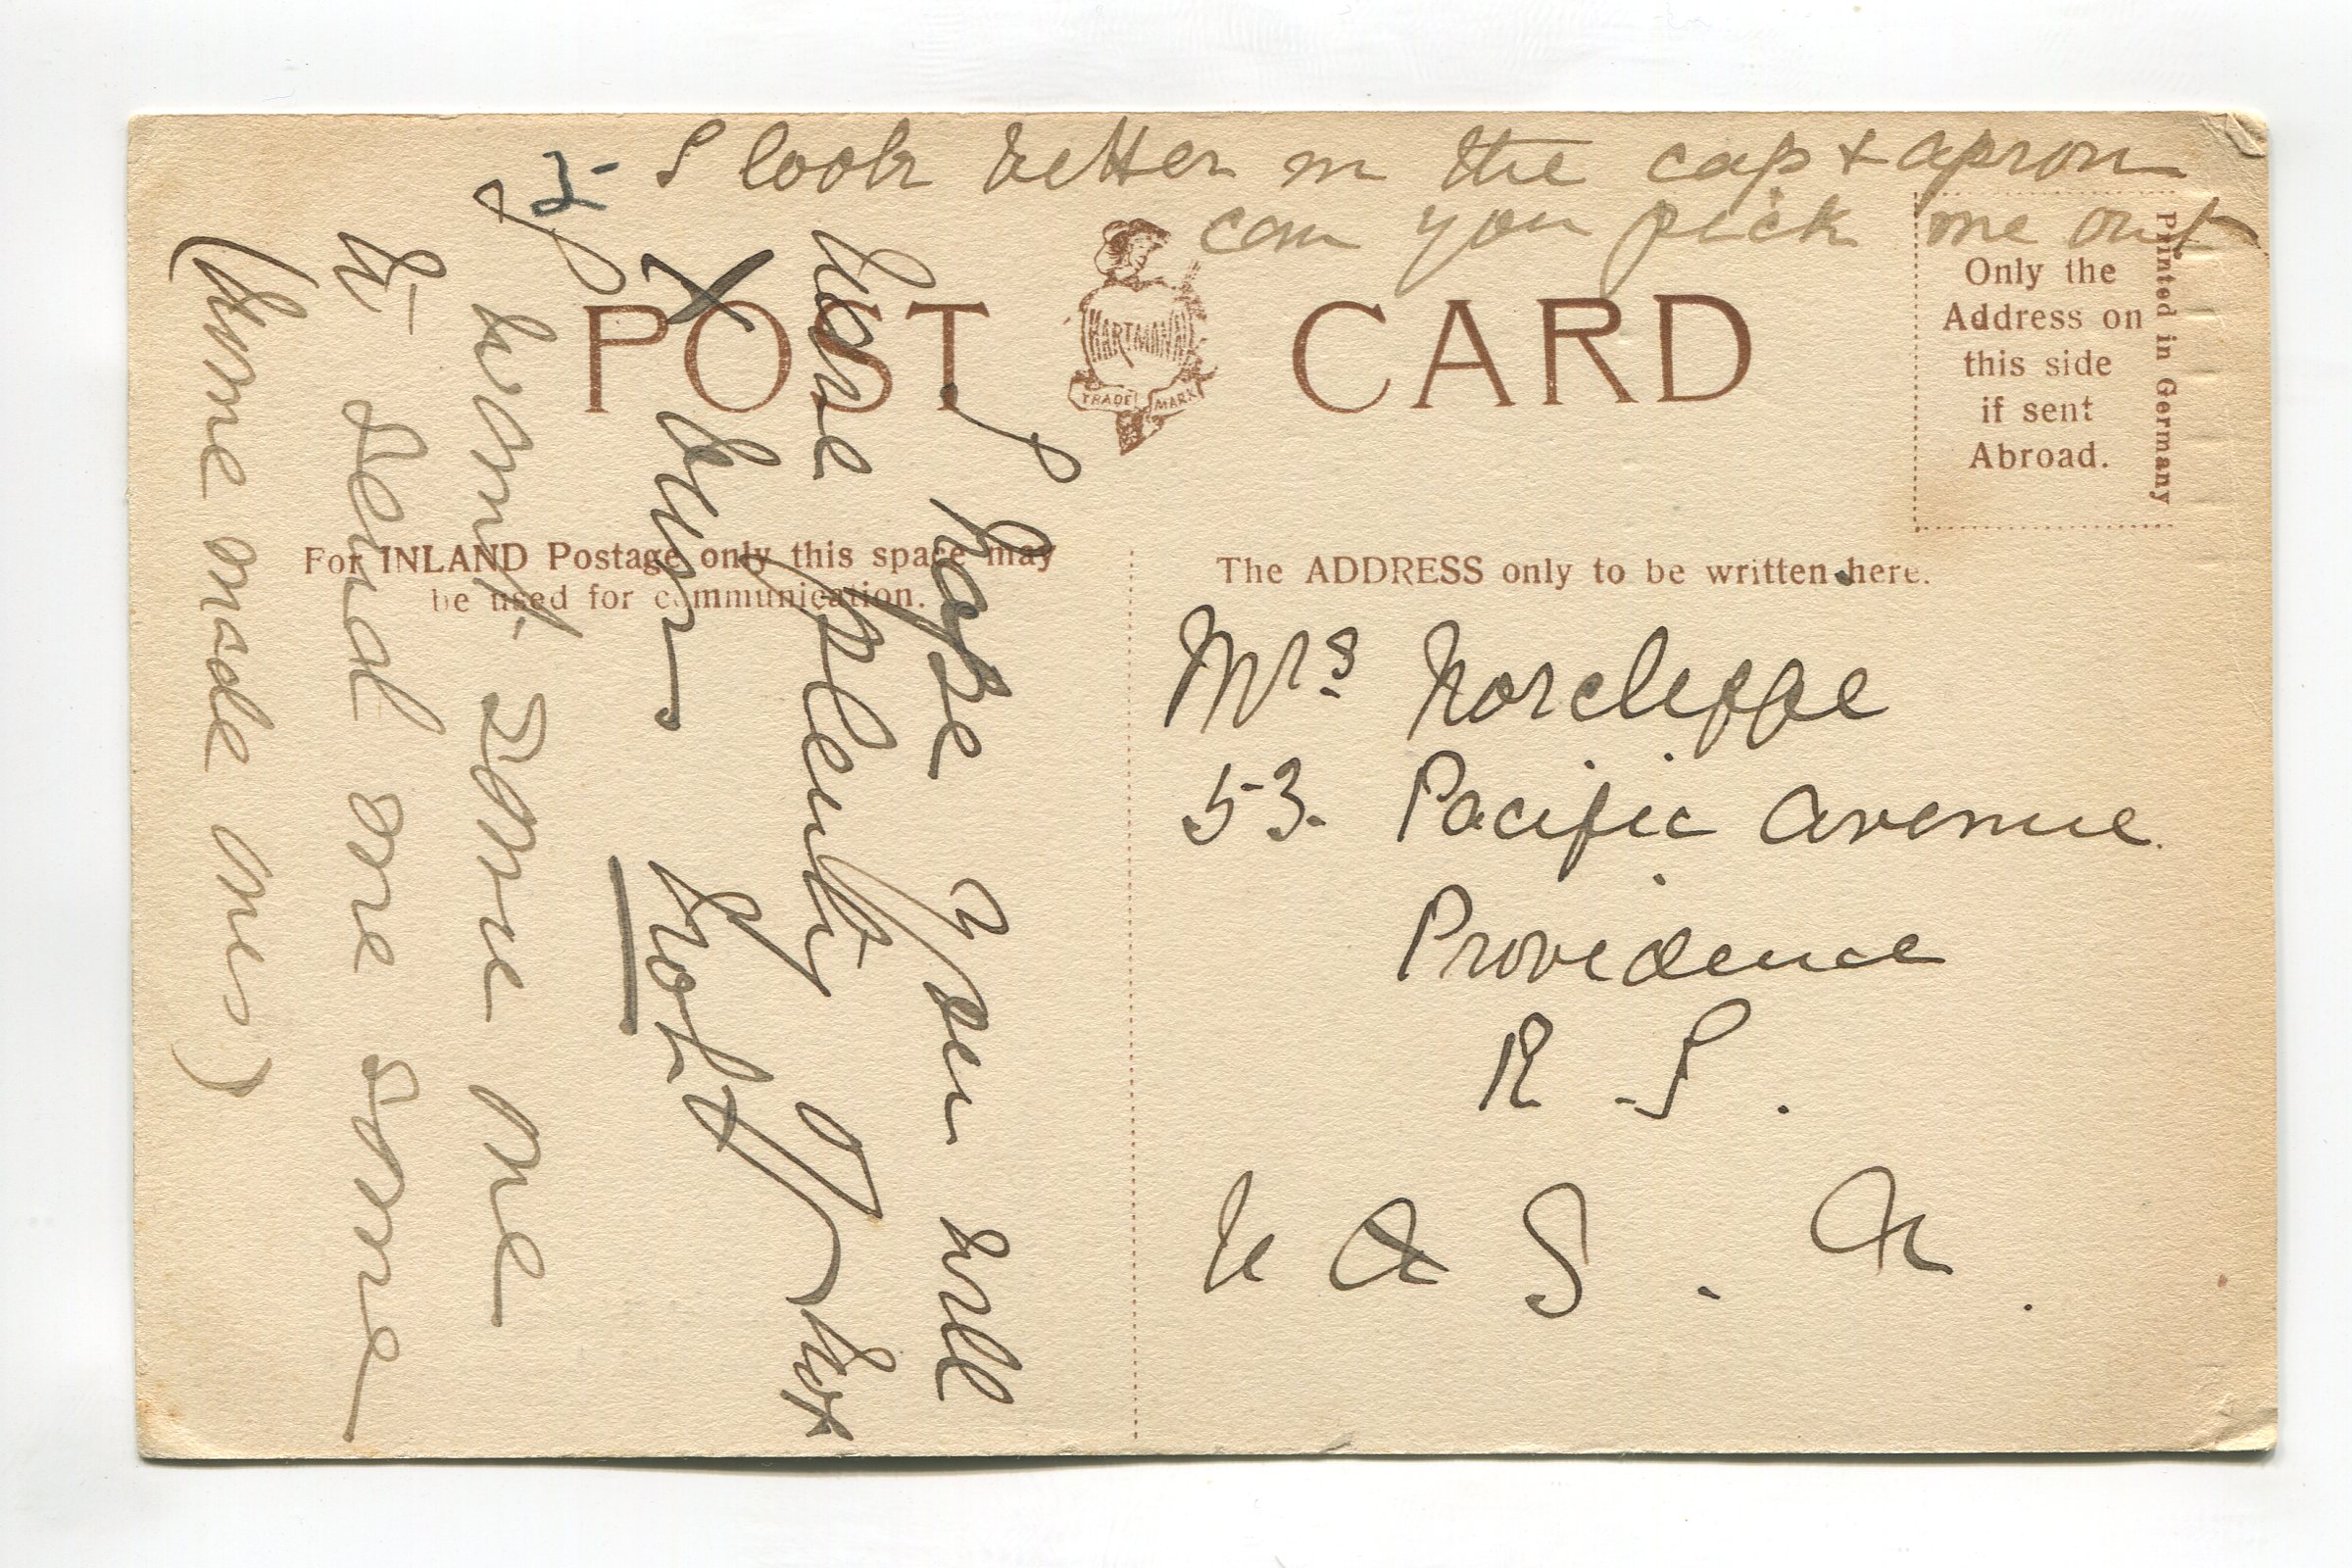 I look better in the cap & apron
can you pick me out
POST CARD
HARTMANN
TRADE MARK
Only the
Address on
this side
if sent
Abroad.
Printed in Germany
For INLAND Postage only this space may
be used for communication.
The ADDRESS only to be written here.
I hope you will
have plenty of hot
X buns
I want some one
to send me some
(home made ones)
Mrs Norcliffe
53. Pacific Avenue.
Providence
R. I.
U S. A.